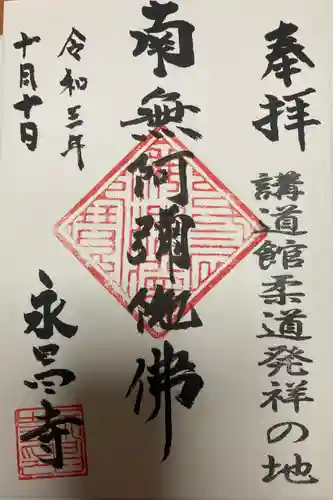 奉拝
講道館柔道発祥の地
南無阿弥陀佛
令和三年
十月十日
永昌寺